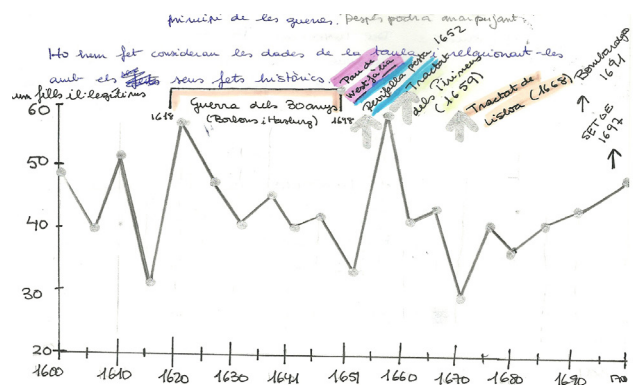 principi de les guerres. Després podrà anar pujant.
Ho hem fet considerant les dades de la taula i relacionant-les
amb els seus fets històrics.
un fills il·legítims
Guerra dels 30 anys
(Borbons i Hasburg)
1618
1648
Pau de
Westfàlia
Perifalla pesta 1652
Tractat
dels Pirineus
(1659)
Tractat de
Lisboa (1668)
Bombardeig
1691
SETGE
1697
60
50
40
30
20
1600
1610
1620
1630
1641
1651
1660
1670
1680
1690